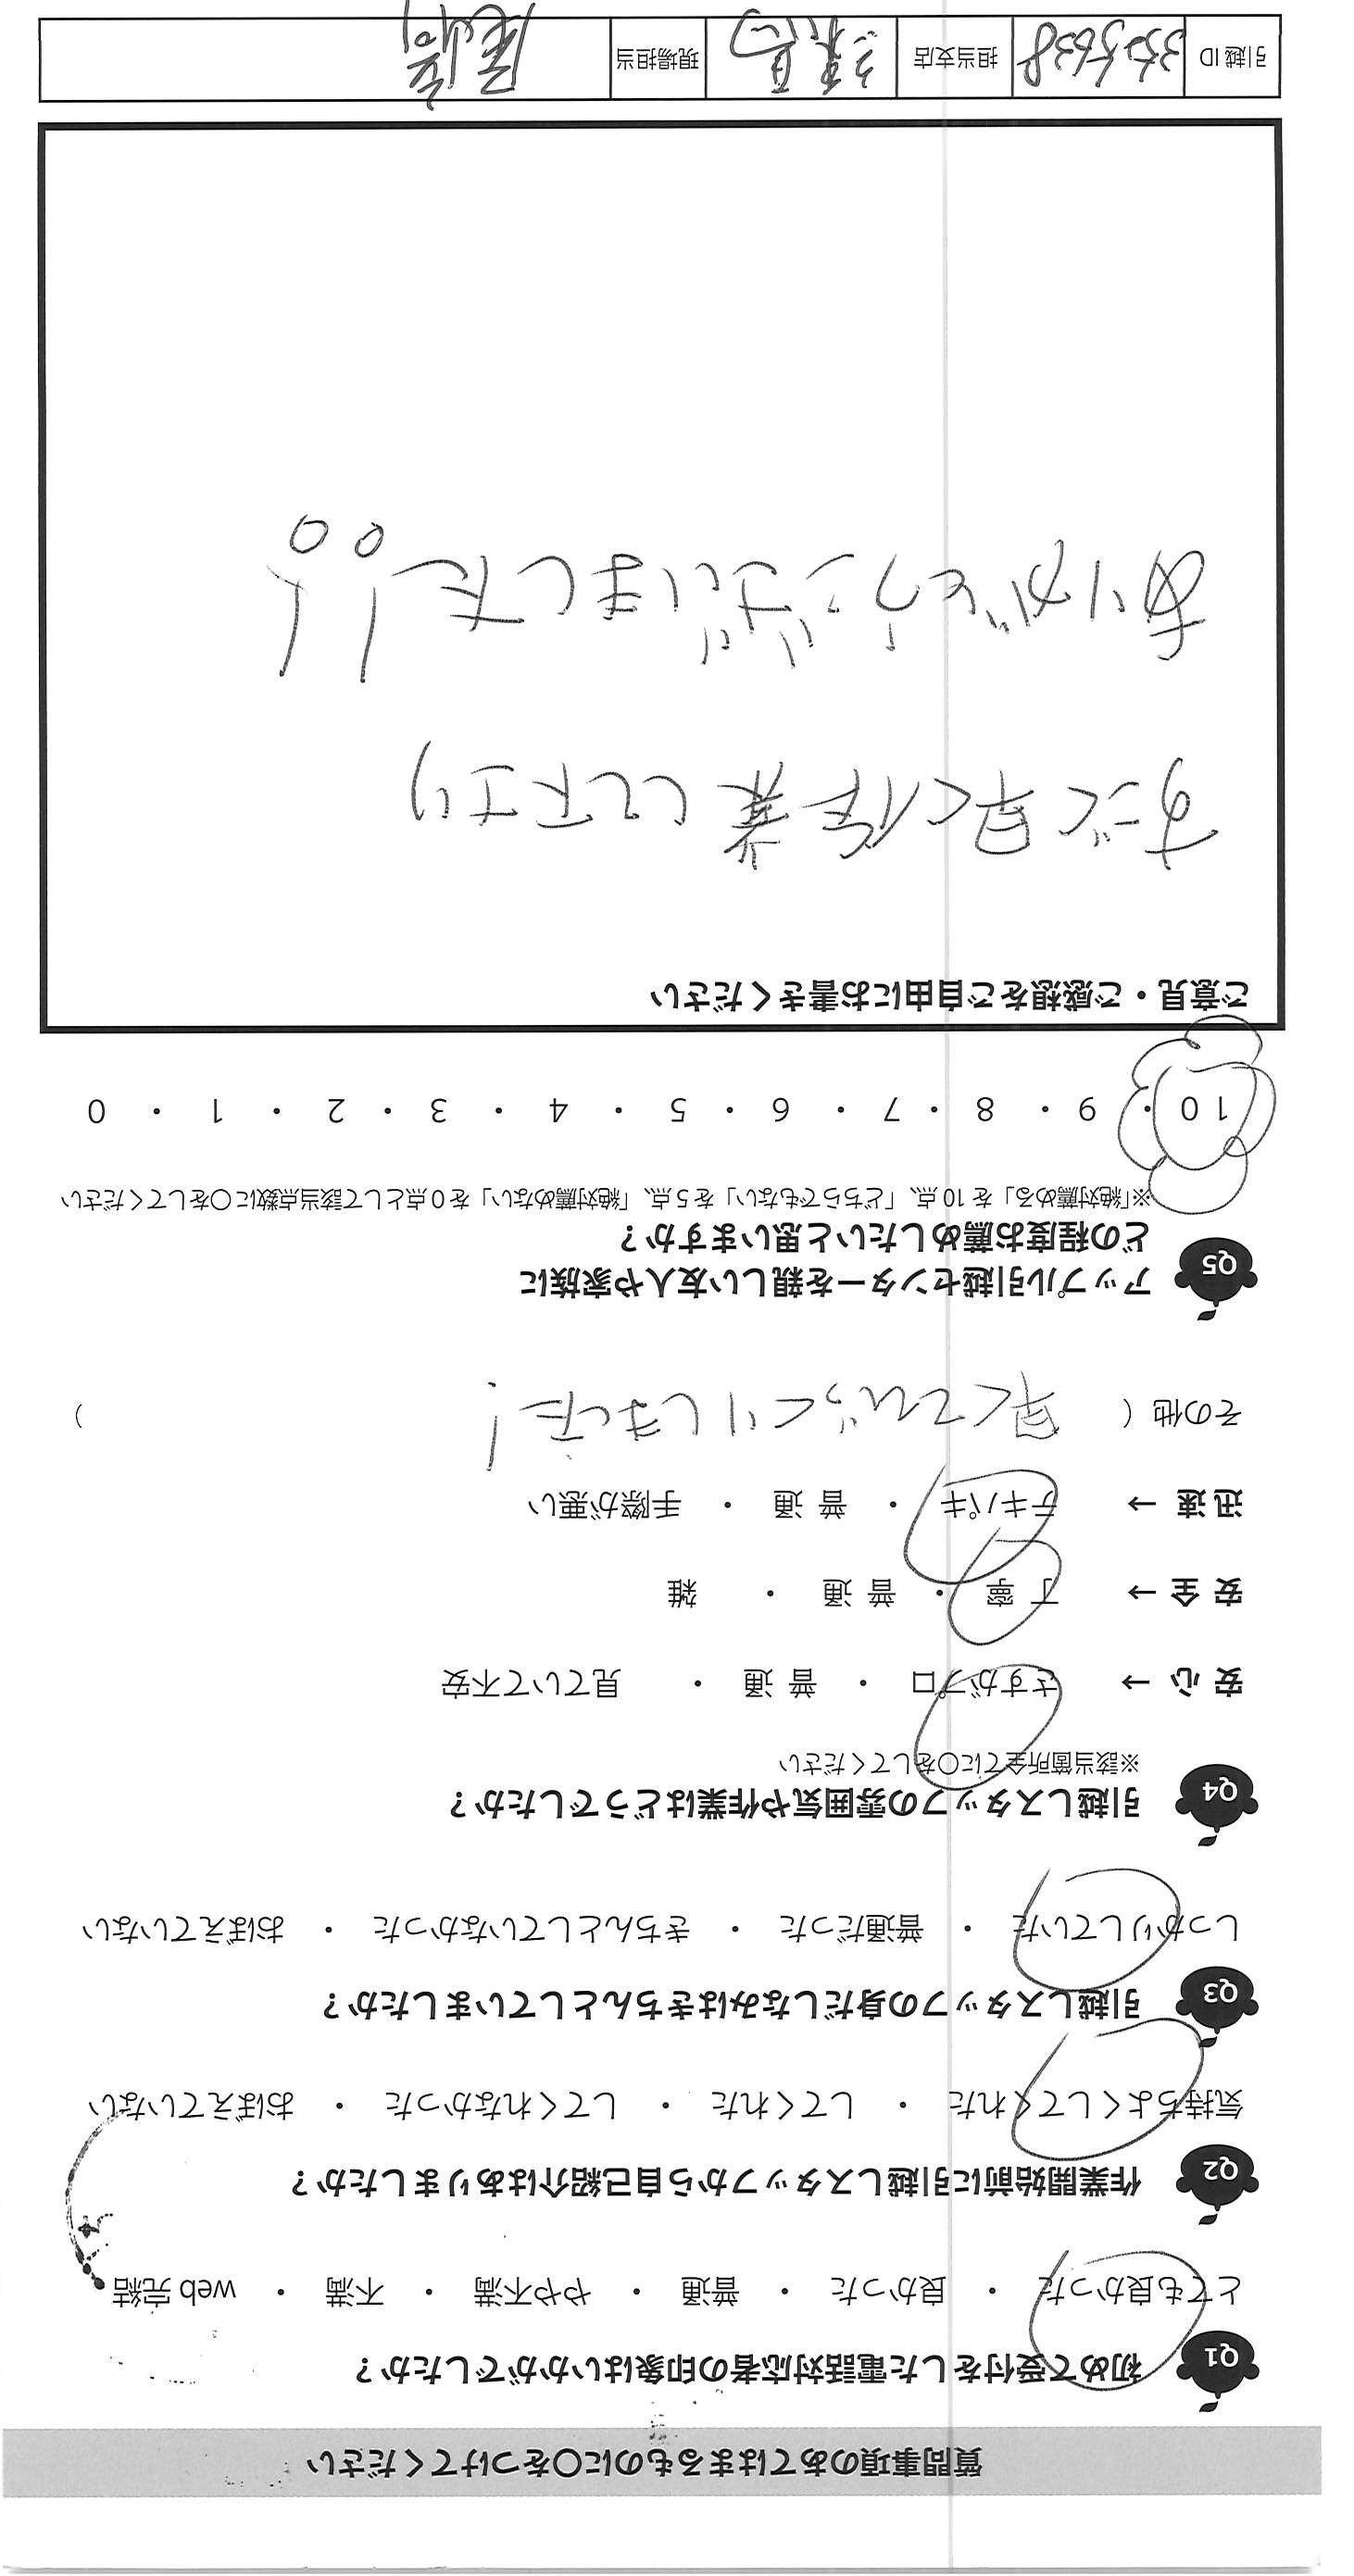 質問事項のあてはまるものに○をつけてください
Q1 初めて受付をした電話対応者の印象はいかがでしたか？
とても良かった ・ 良かった ・ 普通 ・ やや不満 ・ 不満 ・ web完結
Q2 作業開始前に引越しスタッフから自己紹介はありましたか？
気持ちよくしてくれた ・ してくれた ・ してくれなかった ・ おぼえていない
Q3 引越しスタッフの身だしなみはきちんとしていましたか？
しっかりしていた ・ 普通だった ・ きちんとしていなかった ・ おぼえていない
Q4 引越しスタッフの雰囲気や作業はどうでしたか？
※該当箇所全てに○をしてください
安心 → さすがプロ ・ 普通 ・ 見ていて不安
安全 → 丁寧 ・ 普通 ・ 雑
迅速 → テキパキ ・ 普通 ・ 手際が悪い
その他（ 早くてびっくりしました！ ）
Q5 アップル引越センターを親しい友人や家族に
どの程度お薦めしたいと思いますか？
※「絶対薦める」を10点、「どちらでもない」を5点、「絶対薦めない」を0点として該当点数に○をしてください
10 ・ 9 ・ 8 ・ 7 ・ 6 ・ 5 ・ 4 ・ 3 ・ 2 ・ 1 ・ 0
ご意見・ご感想をご自由にお書きください
すごく早く作業して下さり
ありがとうございました!!
引越ID 担当支店 現場担当 尾崎